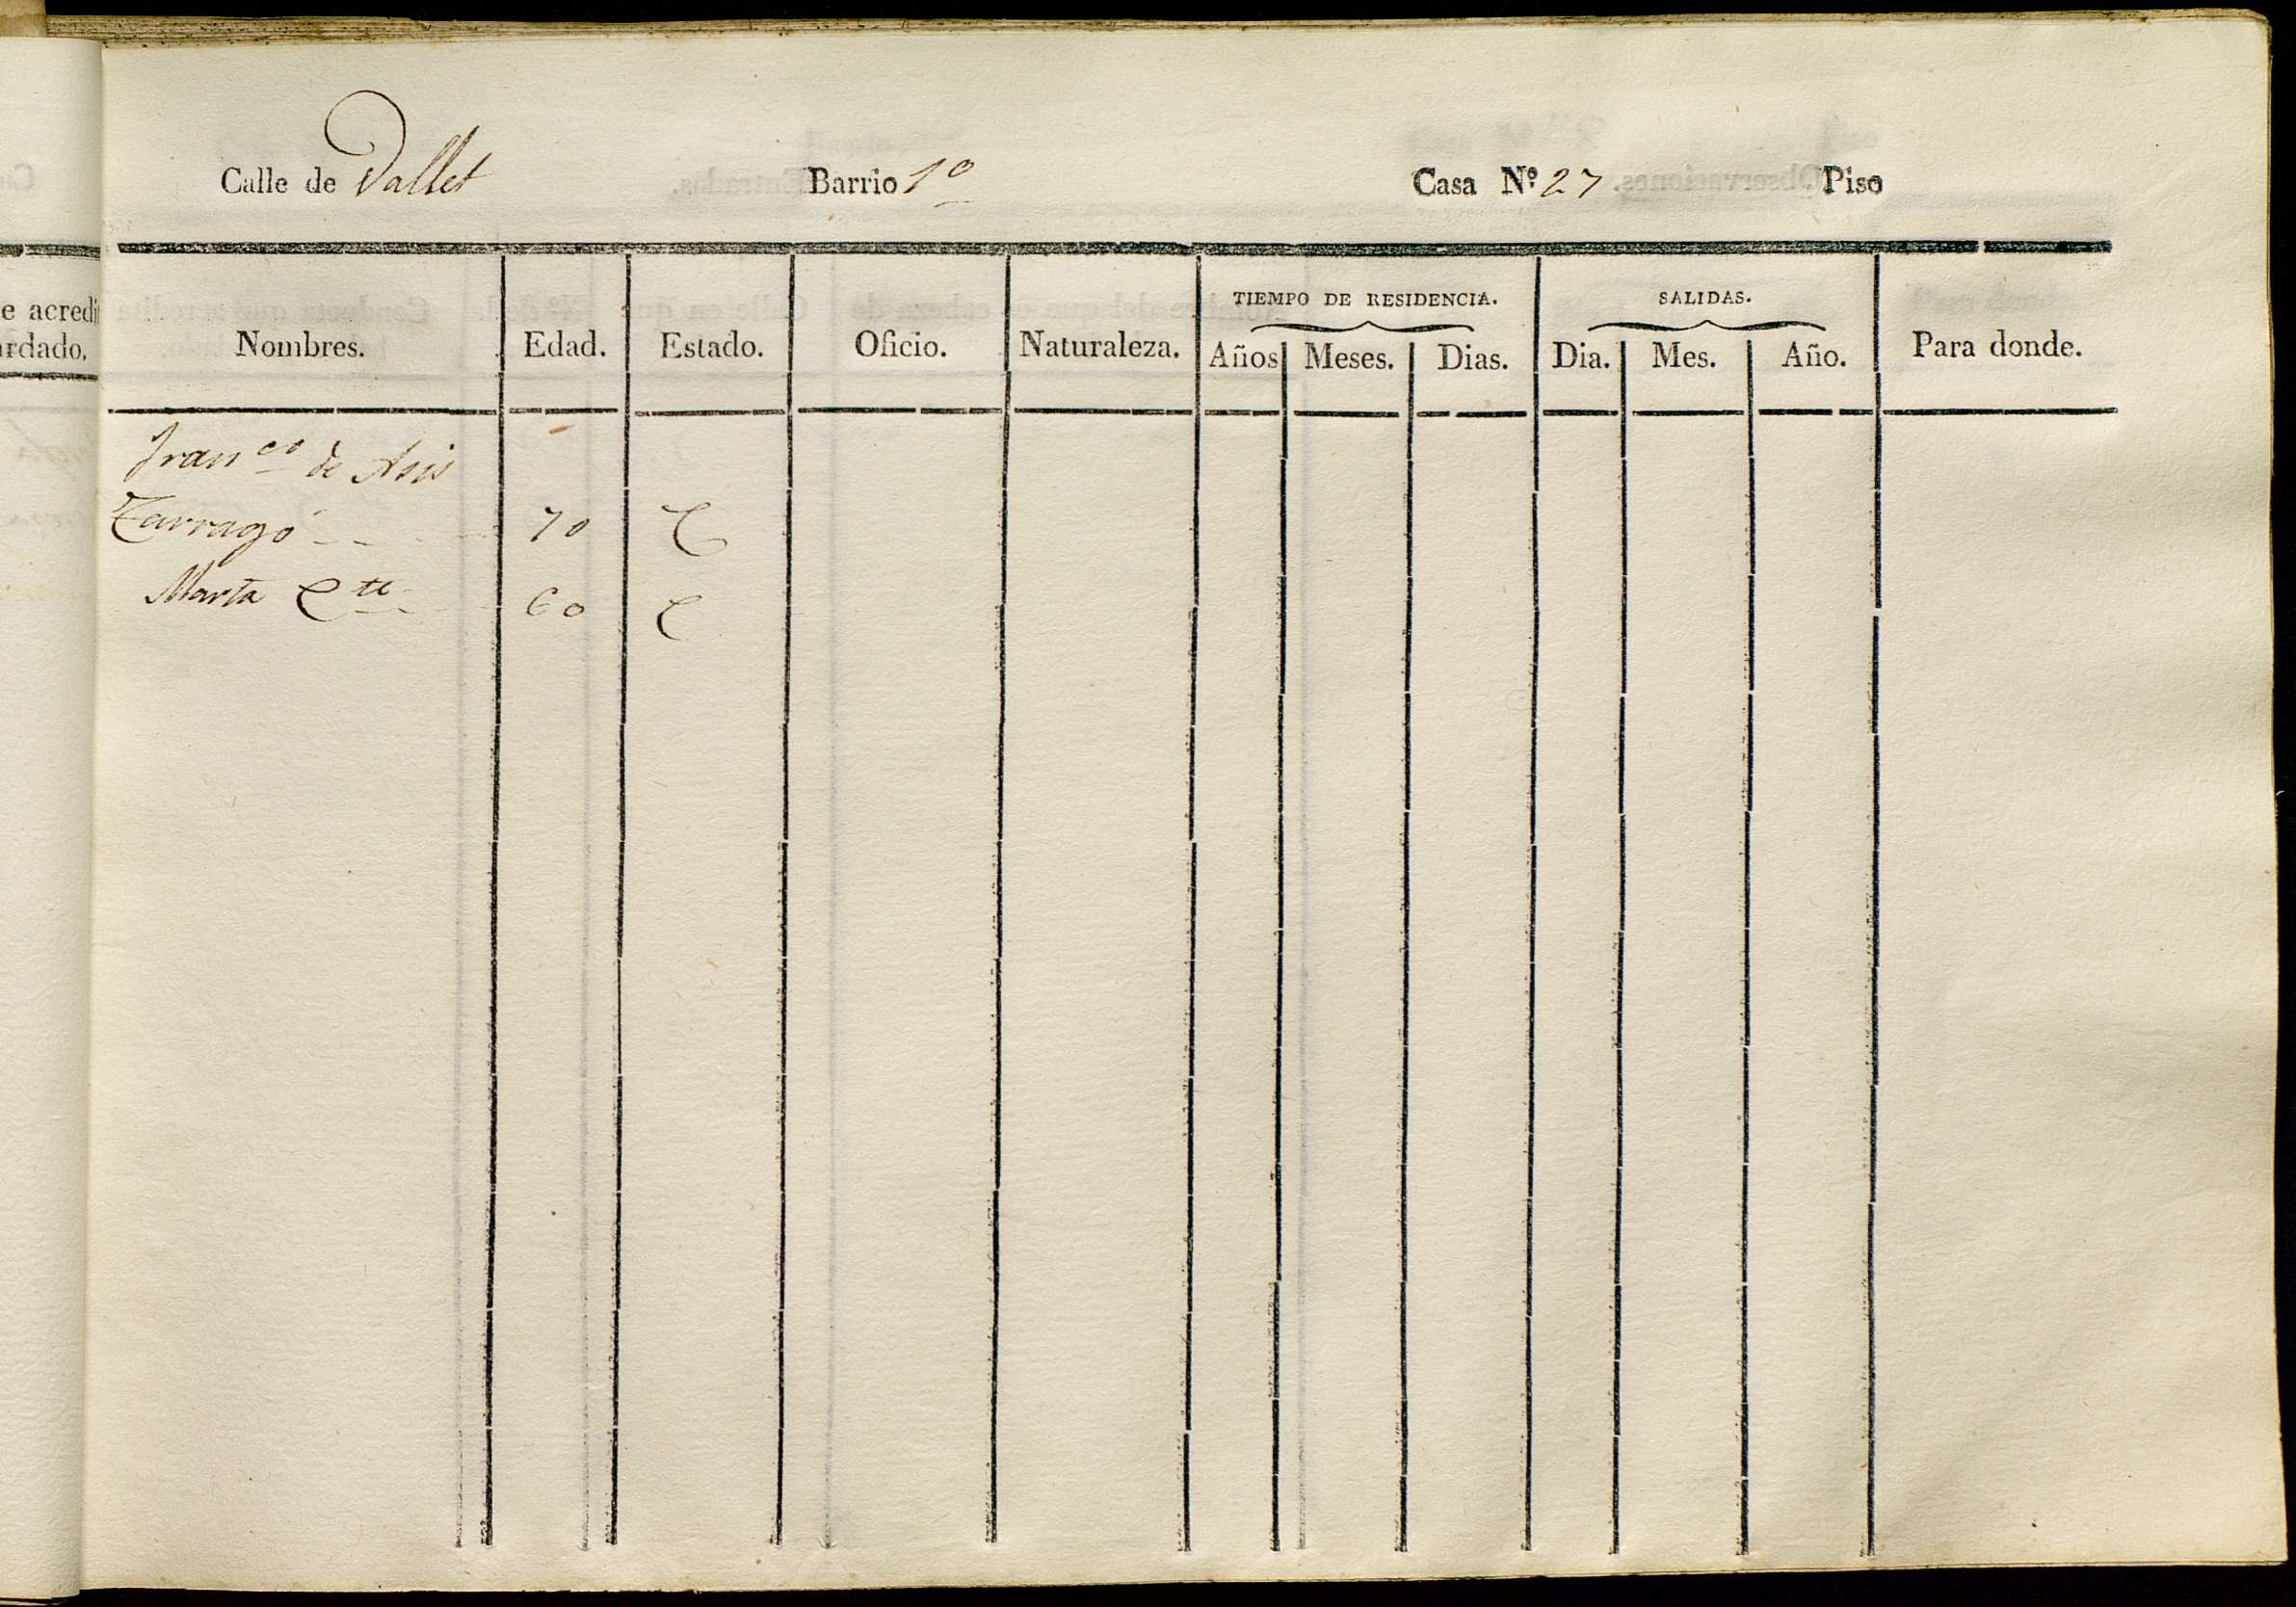 Calle de Vallet Barrio 1º Casa Nº 27 Piso
e acredi
ardado,
TIEMPO DE RESIDENCIA. SALIDAS.
Nombres. Edad. Estado. Oficio. Naturaleza. Años Meses. Dias. Dia. Mes. Año. Para donde.
Franco de Asis
Tarragó 70 C
Marta Cte 60 C